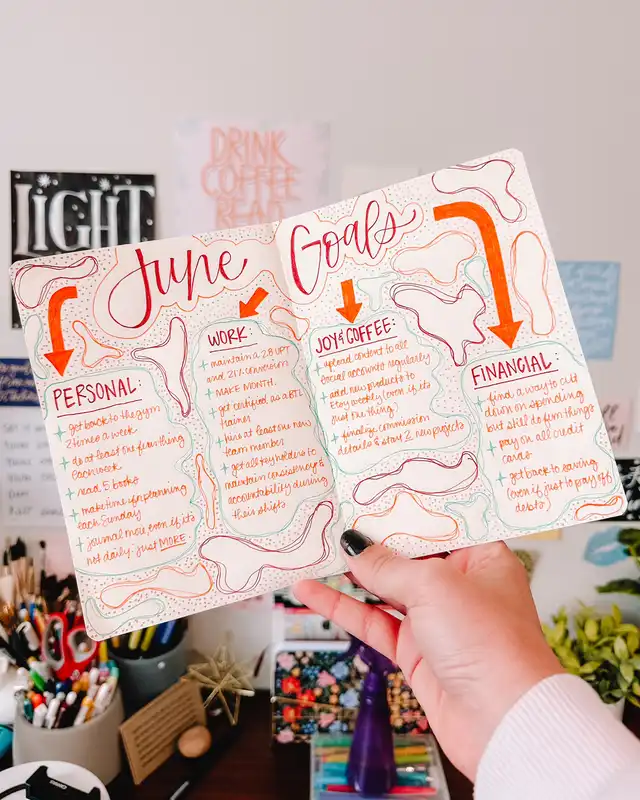 LIGHT
DRINK
COFFEE
READ
June Goals
PERSONAL:
+ get back to the gym
2 times a week
+ do at least one fun thing
each week
+ read 5 books
+ make time for planning
each Sunday
+ journal more even if it's
not daily: just MORE
WORK:
+ maintain a 2.8 UPT
and 21% conversion
+ MAKE MONTH.
+ get certified as a BTL
trainer
+ hire at least one new
team member
+ get all keyholders to
maintain consistency &
accountability during
their shifts
JOY & COFFEE:
+ upload content to all
social accounts regularly
+ add new products to
Etsy weekly (even if it's
just one thing)
+ finalize commission
details & start 2 new projects
FINANCIAL:
+ find a way to cut
down on spending
but still do fun things
+ pay on all credit
cards
+ get back to saving
(even if just to pay off
debts)